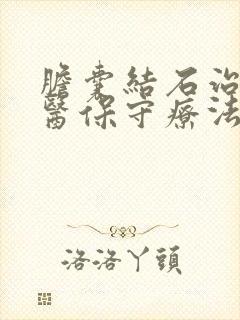 膽囊結石治
醫保守療法
洛洛丫頭